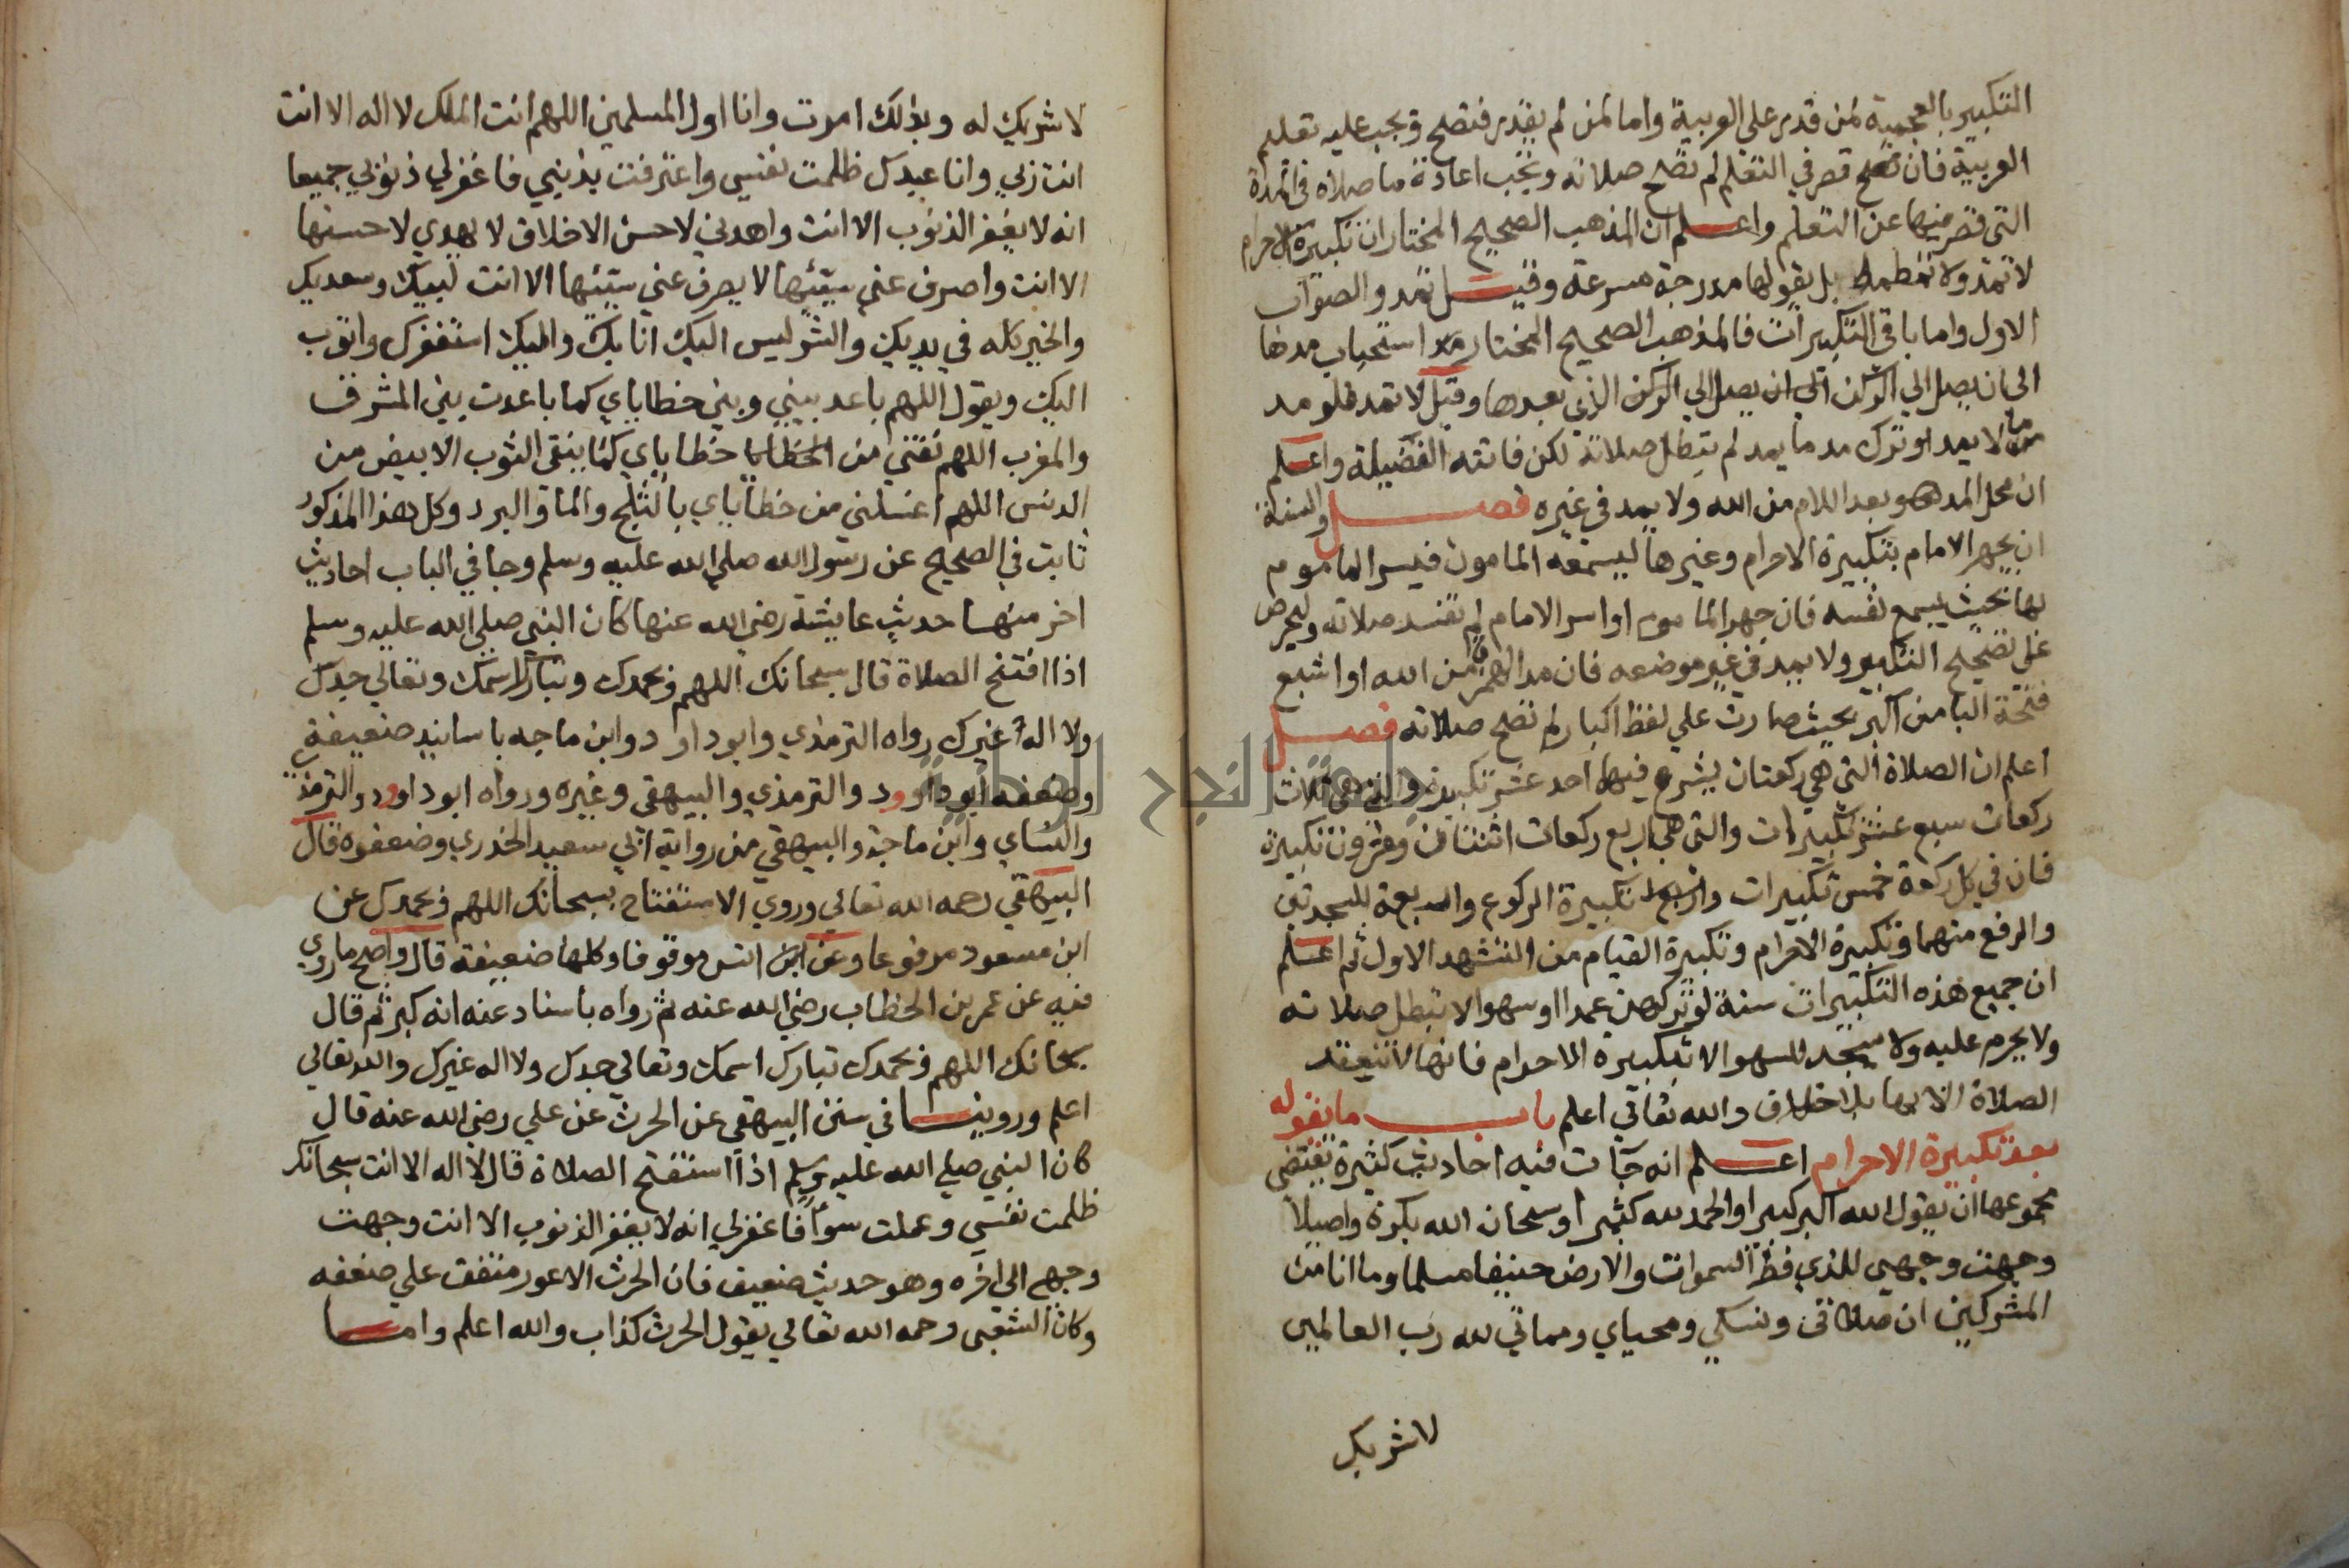 التكبير بالعجمية لمن قدر علي العربية واما لمن لم يقدر فتصح ويجب عليه تعلم
العربية فان قصر في التعلم لم تصح صلاته وتجب اعادة ما صلاه في المدة
التي قصر فيها عن التعلم واعلم ان المذهب الصحيح المختار ان تكبيرة الاحرام
لا تمد ولا تمطط بل يقولها مدرجة مسرعة وقيل تمد والصواب
الاول واما باقي التكبيرات فالمذهب الصحيح المختار استحباب مدها
الى ان يصل الي الركن الذي بعدها وقيل لا تمد فلو مد
ما لا يمد او ترك مد ما يمد لم تبطل صلاته لكن فاتته الفضيلة واعلم
ان محل المد هو بعد اللام من الله ولا يمد في غيره فصل والسنة
ان يجهر الامام بتكبيرة الاحرام وغيرها ليسمعه المامون فيسر الماموم
بها بحيث يسمع نفسه فان جهر الماموم او اسر الامام لم تفسد صلاته وليحرص
علي تصحيح التكبير ولا يمد في غير موضعه فان مد الهمزة من الله او اشبع
فتحة البا من اكبر بحيث صارت علي لفظ اكبار لم تصح صلاته فصل
اعلم ان الصلاة التي هي ركعتان يشرع فيها احد عشر تكبيرة والتي هي ثلاث
ركعات سبع عشر تكبيرات والتي هي اربع ركعات اثنتان وعشرون تكبيرة
فان في كل ركعة خمس تكبيرات تكبيرة الركوع واربعة للسجدتين
والرفع منهما وتكبيرة الاحرام وتكبيرة القيام من التشهد الاول ثم اعلم
ان جميع هذه التكبيرات سنة لو تركهن عمدا او سهوا لا تبطل صلاته
ولا يحرم عليه ولا سجد للسهو الا تكبيرة الاحرام فانها لا تنعقد
الصلاة الا بها بلا خلاف والله تعالي اعلم باب ما يقوله
بعد تكبيرة الاحرام اعلم انه جآت فيه احاديث كثيرة تقتضي
مجموعها ان يقول الله اكبر كبيرا والحمد لله كثيرا وسبحان الله بكرة واصيلا
وجهت وجهي للذي فطر السموات والارض حنيفا مسلما وما انا من
المشركين ان صلاتي ونسكي ومحياي ومماتي لله رب العالمين
لا شريك
لا شريك له وبذلك امرت وانا اول المسلمين اللهم انت الملك لا اله الا انت
انت ربي وانا عبدك ظلمت نفسي واعترفت بذنبي فاغفر لي ذنوبي جميعا
انه لا يغفر الذنوب الا انت واهدني لاحسن الاخلاق لا يهدي لاحسنها
الا انت واصرف عني سيئها لا يصرف عني سيئها الا انت لبيك وسعديك
والخير كله في يديك والشر ليس اليك انا بك واليك استغفرك واتوب
اليك ويقول اللهم باعد بيني وبين خطاياي كما باعدت بين المشرق
والمغرب اللهم نقني من خطاياي كما ينقى الثوب الابيض من
الدنس اللهم اغسلني من خطاياي بالثلج والما والبرد وكل هذا المذكور
ثابت في الصحيح عن رسول الله صلي الله عليه وسلم وجا في الباب احاديث
اخر منها حديث عايشة رضي الله عنها كان النبي صلي الله عليه وسلم
اذا افتتح الصلاة قال سبحانك اللهم وبحمدك وتبارك اسمك وتعالي جدك
ولا اله غيرك رواه الترمذي وابو داود وابن ماجه باسانيد ضعيفة
وضعفه ابو داوود والترمذي والبيهقي وغيره ورواه ابو داوود والترمذ
والنساي وابن ماجة والبيهقي من رواية ابي سعيد الخدري وضعفوه قال
البيهقي رحمه الله تعالي وروي الاستفتاح بسبحانك اللهم وبحمدك عن
ابن مسعود مرفوعا وعن انس موقوفا وكلها ضعيفة قال واصح ما روي
فيه عن عمر بن الخطاب رضي الله عنه ثم رواه باسناد عنه انه كبر ثم قال
سبحانك اللهم وبحمدك تبارك اسمك وتعالي جدك ولا اله غيرك والله تعالي
اعلم وروينا في سنن البيهقي عن الحرث عن علي رضي الله عنه قال
كان النبي صلي الله عليه وسلم اذا استفتح الصلاة قال لا اله الا انت سبحانك
ظلمت نفسي وعملت سوأ فاغفر لي انه لا يغفر الذنوب الا انت وجهت
وجهي الى اخره وهو حديث ضعيف فان الحرث الاعور متفق علي ضعفه
وكان الشعبي رحمه الله تعالي يقول الحرث كذاب والله اعلم واما